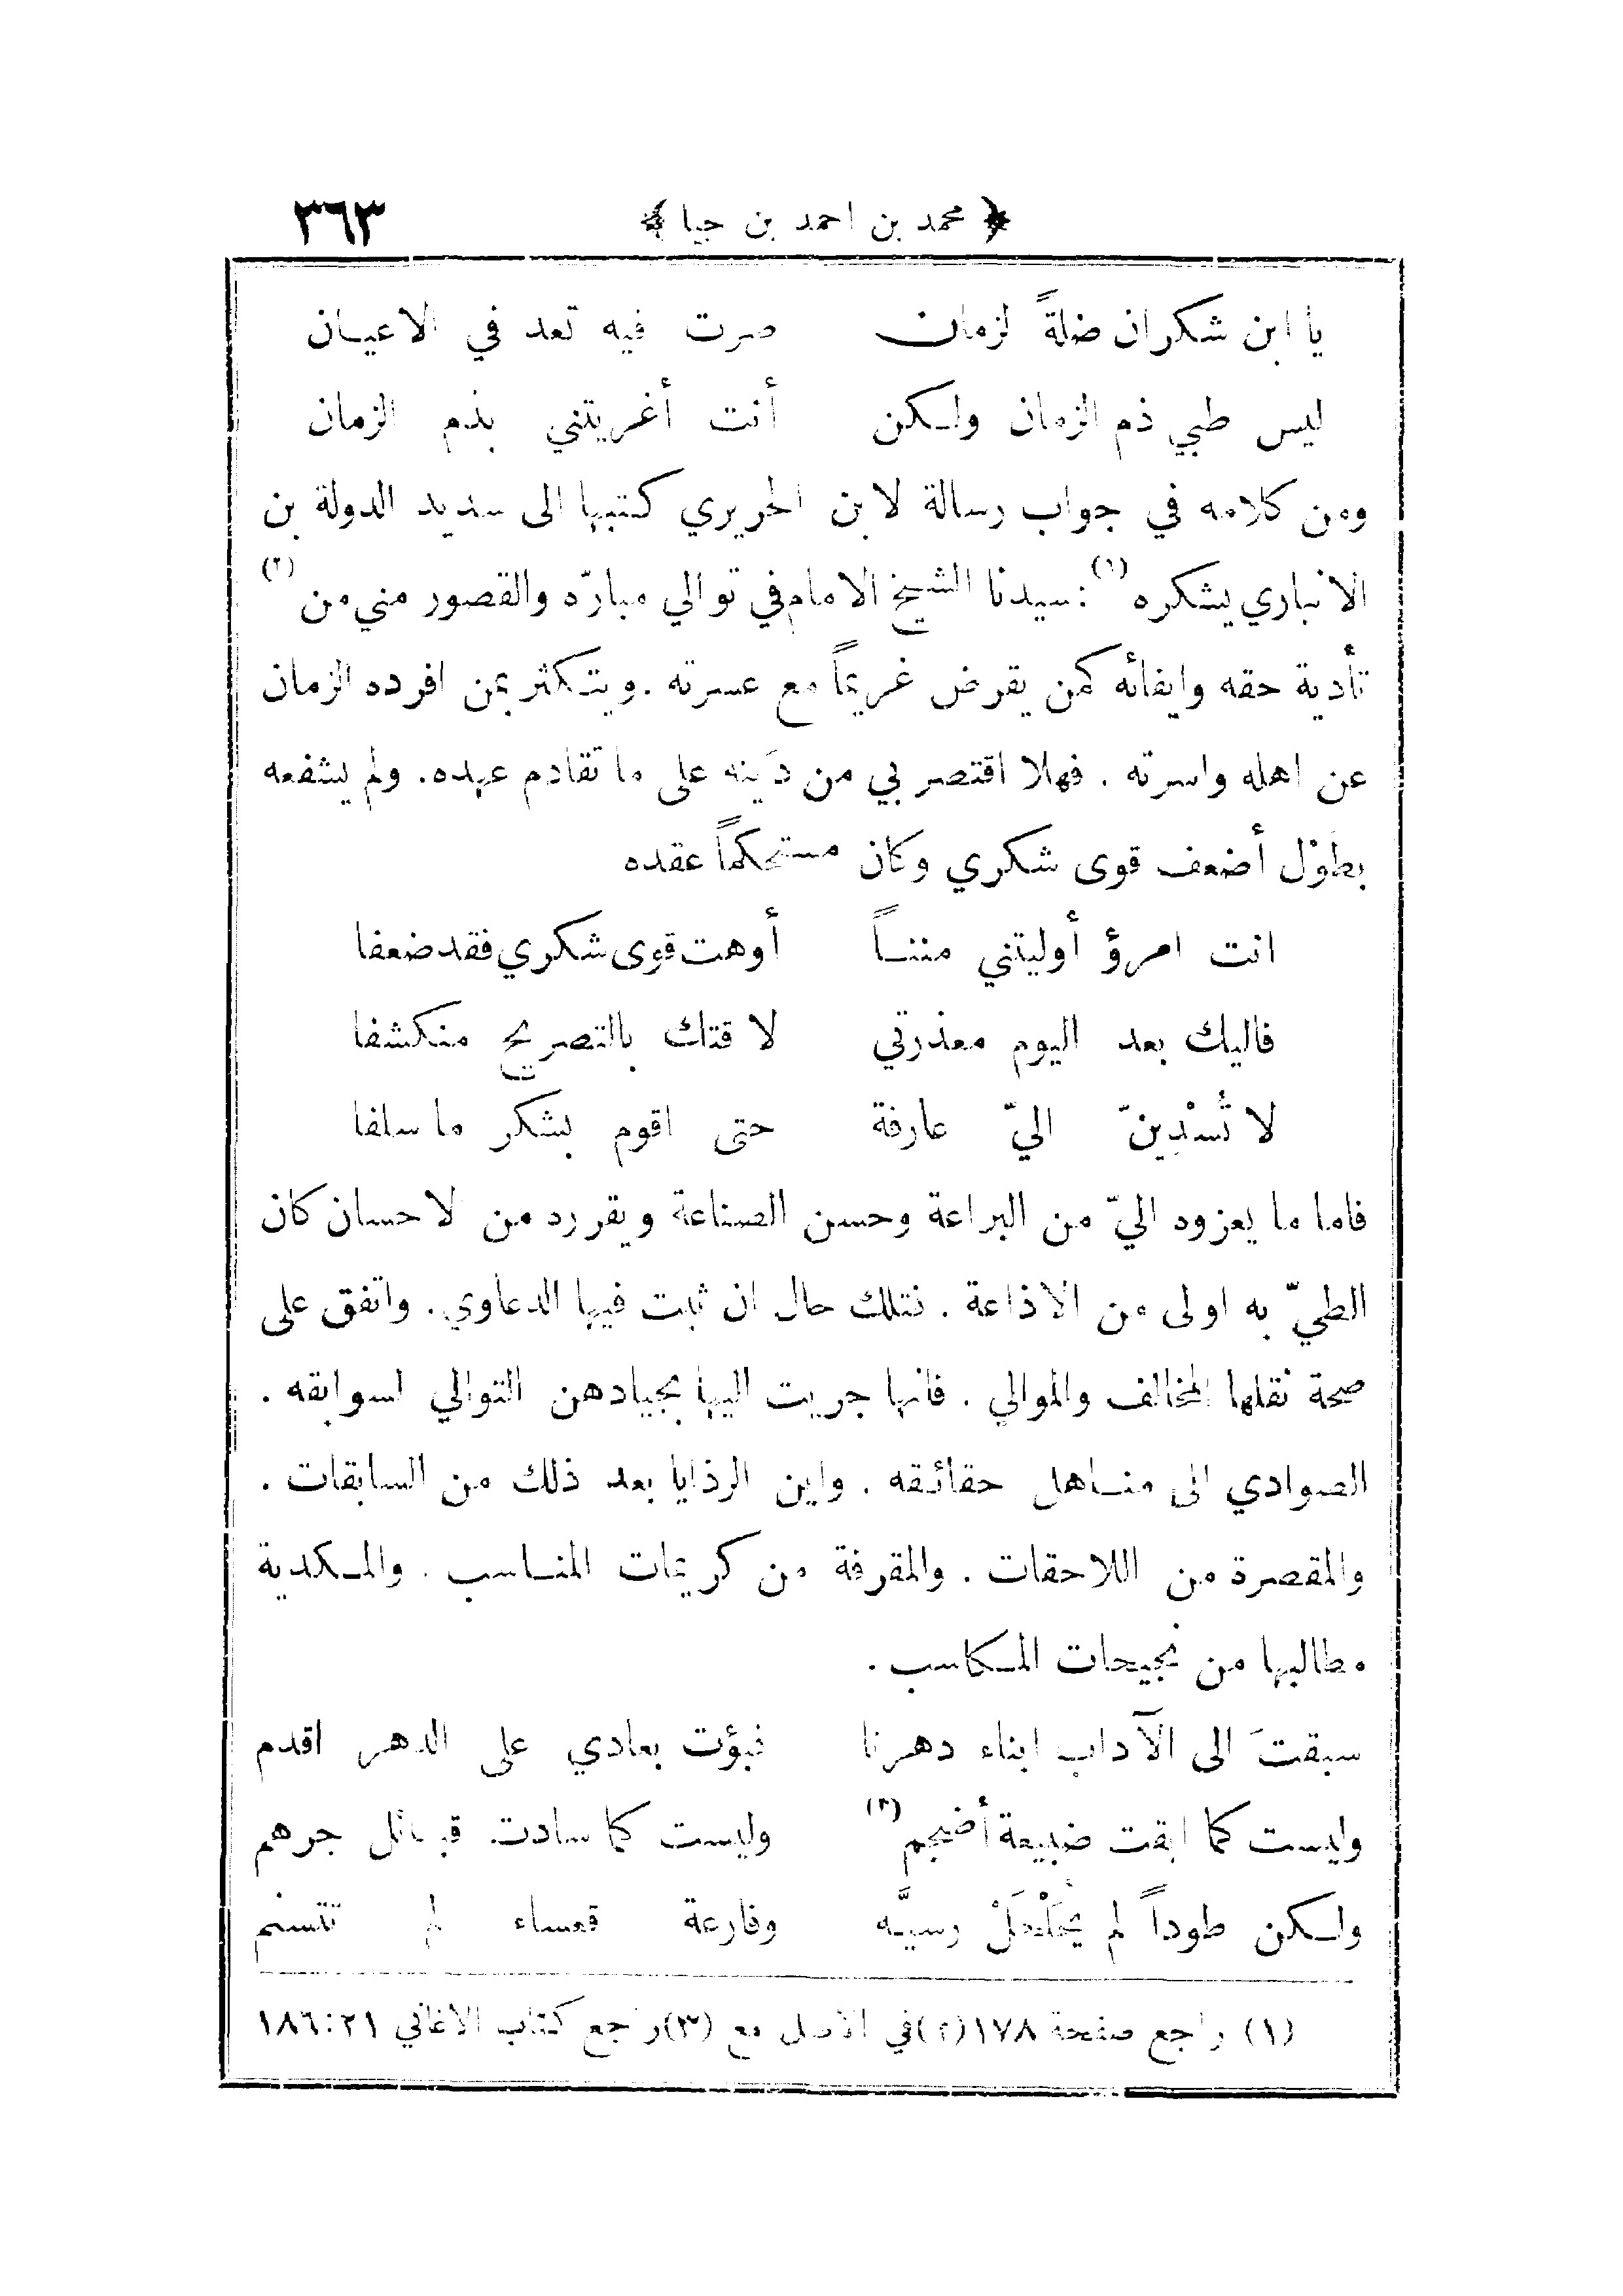 ﴿ محمد بن احمد بن جيا ﴾ ٣٦٣
يا ابن شكران ضلةً لزمان صرت فيه تعد في الاعيان
ليس طبي ذم الزمان ولكن أنت أغريتني بذم الزمان
ومن كلامه في جواب رسالة لابن الحريري كتبها الى سديد الدولة بن
الانباري يشكره (١) : سيدنا الشيخ الامام في توالي مبارّه والقصور مني من (٢)
تأدية حقه وايفائه كمن يقرض غريماً مع عسرته . ويتكثر بمن افرده الزمان
عن اهله واسرته . فهلا اقتصر بي من دَينه على ما تقادم عهده . ولم يشفعه
بطَوْل أضعف قوى شكري وكان مستحكماً عقده
انت امرؤ أوليتني مننـاً أوهت قوى شكري فقد ضعفا
فاليك بعد اليوم معذرتي لاقتك بالتصريح منكشفا
لا تُسْدِينّ اليّ عارفة حتى اقوم بشكر ما سلفا
فاما ما يعزوه اليّ من البراعة وحسن الصناعة ويقرره من لاحسان كان
الطيّ به اولى من الاذاعة . فتلك حال ان ثبت فيها الدعاوي . واتفق على
صحة نقلها المخالف والموالي . فانها جريت اليها بجيادهن التوالي لسوابقه .
الصوادي الى مناهل حقائقه . واين الرذايا بعد ذلك من السابقات .
والمقصرة من اللاحقات . والمقرفة من كريمات المناسب . والمكدية
مطالبها من نجيحات المكاسب .
سبقتَ الى الآداب ابناء دهرنا فبؤت بعادي على الدهر اقدم
وليست كما ابقت ضبيعة أضجم (٣) وليست كما سادت قبائل جرهم
ولكن طوداً لم يُحَلْحَلْ رسيَّه وفارعة قعساء لم تتسنم
(١) راجع صفحة ١٧٨ (٢) في الاصل مع (٣) راجع كتاب الاغاني ٢١ : ١٨٦